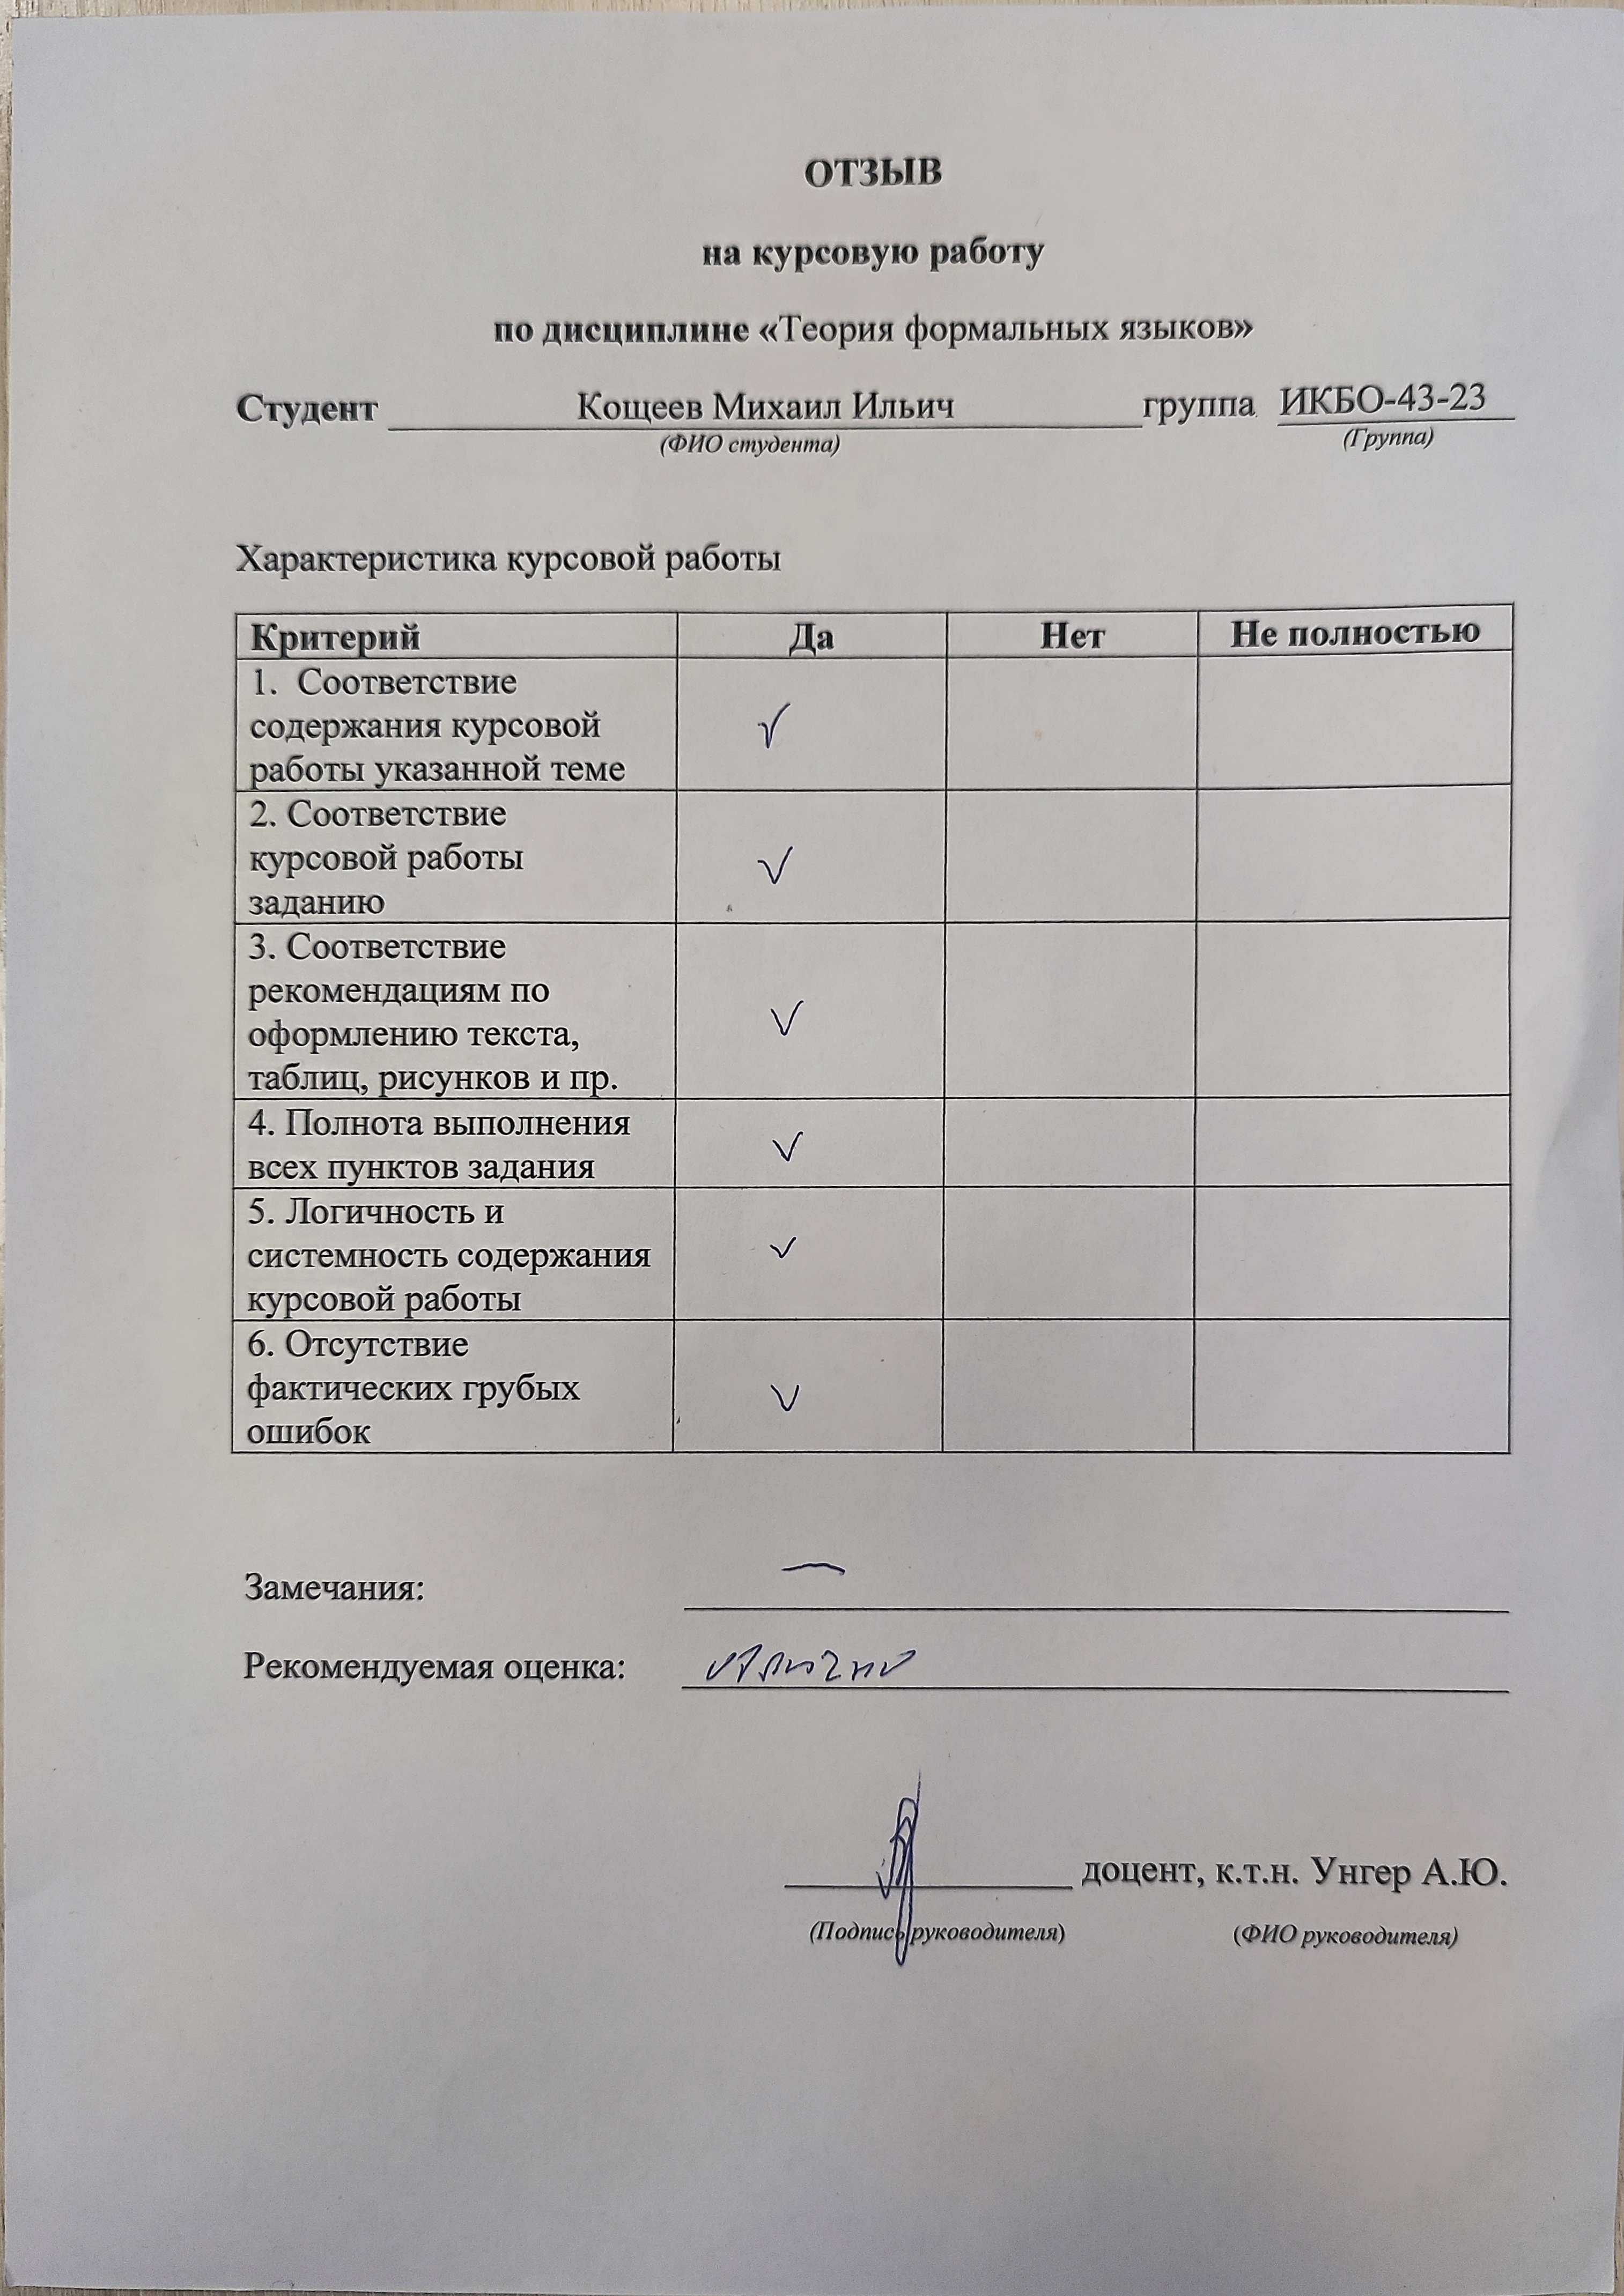 ОТЗЫВ
на курсовую работу
по дисциплине «Теория формальных языков»
Студент Кощеев Михаил Ильич группа ИКБО-43-23
(ФИО студента) (Группа)
Характеристика курсовой работы
Критерий Да Нет Не полностью
1. Соответствие
содержания курсовой
работы указанной теме
✓
2. Соответствие
курсовой работы
заданию
✓
3. Соответствие
рекомендациям по
оформлению текста,
таблиц, рисунков и пр.
✓
4. Полнота выполнения
всех пунктов задания
✓
5. Логичность и
системность содержания
курсовой работы
✓
6. Отсутствие
фактических грубых
ошибок
✓
Замечания: —
Рекомендуемая оценка: отлично
доцент, к.т.н. Унгер А.Ю.
(Подпись руководителя) (ФИО руководителя)